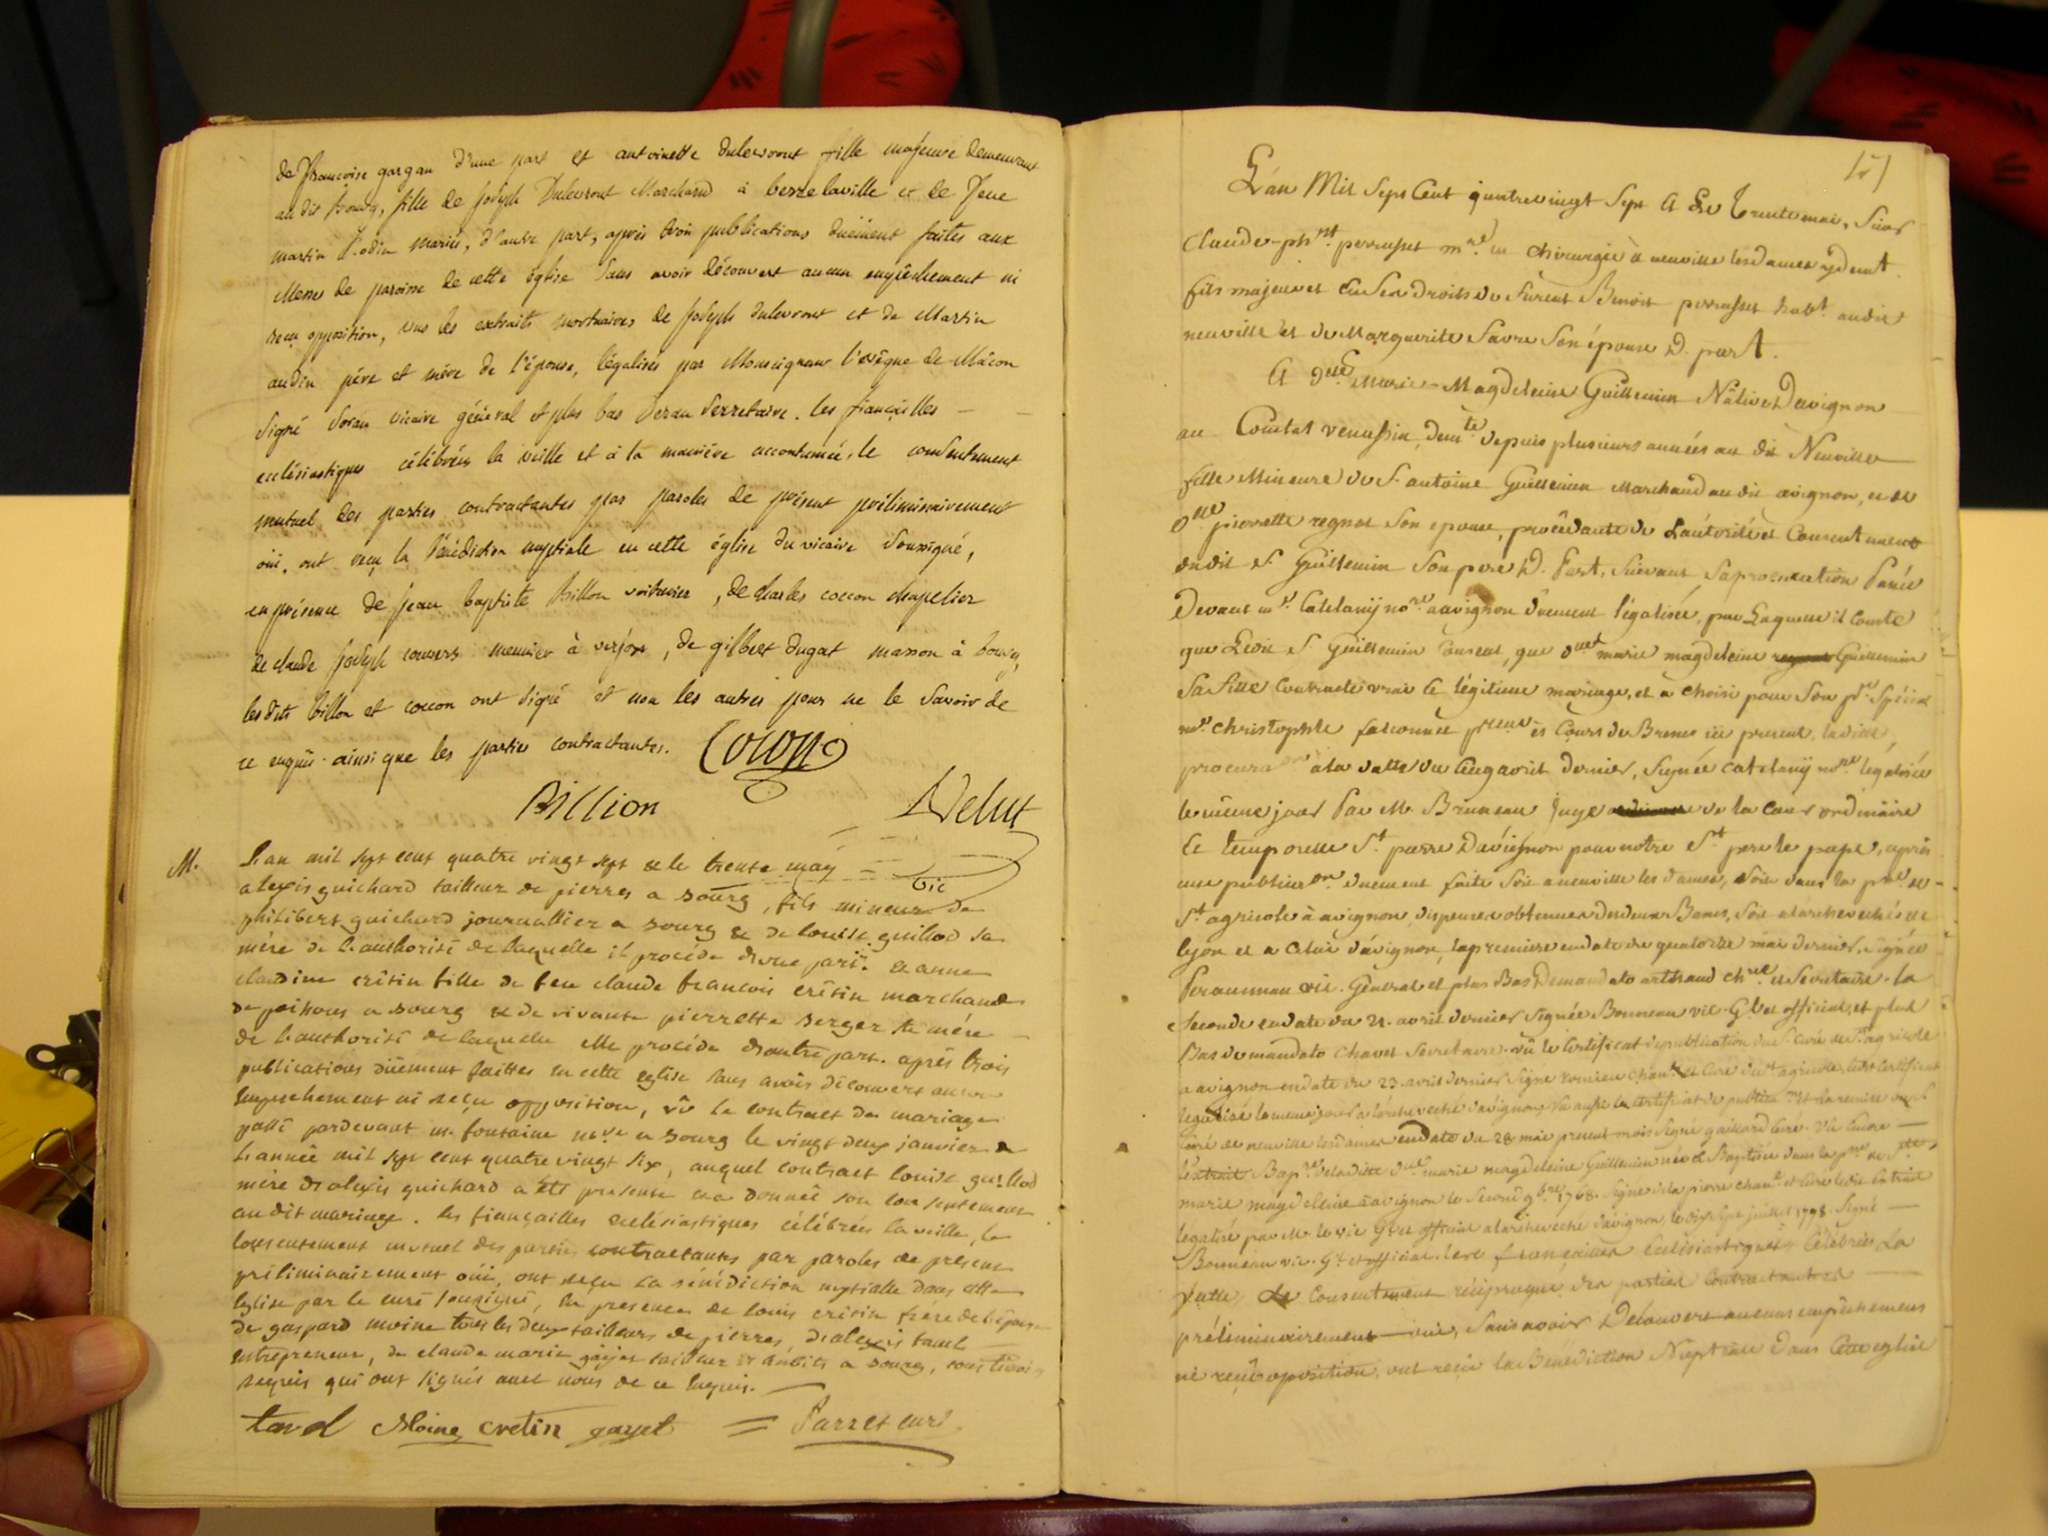 de françoise gargan d'une part et antoinette dulevront fille majeure demeurant
au dit bourg, fille de joseph Dulevront Marchand à berzelaville et de feue
martin odin mariés, d'autre part, après trois publications duëment faites aux
Messes de paroisse de cette église sans avoir découvert aucun empêchement ni
reçu opposition, vus les extraits mortuaires de joseph dulevront et de Martin
audin père et mère de l'épouse, légalisés par Monseigneur l'évêque de Mâcon
Signé vicaire général et plus bas Secretaire. les fiançailles
ecclésiastiques célébrées la veille et à la manière accoutumée, le consentement
mutuel des parties contractantes par paroles de présent préliminairement
oüi, ont reçu la Bénédiction nuptiale en cette église du vicaire soussigné,
en présence de jean baptiste Billon voiturier, de charles cocon chapelier
de claude joseph convers meunier à verjon, de gilbert dugat masson à bourg,
les dits billon et cocon ont signé et non les autres pour ne le savoir de
ce enquis ainsi que les parties contractantes. Cocon
Billion Velut
vic
M. L'an mil sept cent quatre vingt sept & le trente may
alexis guichard tailleur de pierres a Bourg, fils mineur de
philibert guichard journallier a Bourg & de louise guillod sa
mère de l'authorité de laquelle il procéde d'une part. & anne
claudine crêtin fille de feu claude françois crêtin marchand
de poissons a Bourg & de vivante pierrette Berger sa mère
de l'authorité de laquelle elle procéde d'autre part. après trois
publications düement faittes en cette eglise sans avoir découvert aucun
empechement ni reçu opposition, vû le contract de mariage
passé pardevant m. fontaine no.re a Bourg le vingt deux janvier de
l'année mil sept cent quatre vingt six, auquel contract louise guillod
mère d'alexis guichard a été presente et a donnée son consentement
au dit mariage. les fiançailles ecclésiastiques célébrées la veille, le
consentement mutuel des parties contractantes par paroles de present
préliminairement oüi, ont reçu la bénédiction nuptialle dans cette
eglise par le curé soussigné, en presence de louis crétin frère de l'épouse
de gaspard moine tous les deux tailleurs de pierres, d'alexis tavel
entrepreneur, de claude marie gayet tailleur d'habits a Bourg, tous témoins
requis qui ont signés avec nous de ce enquis.
tavel Moine cretin gayet = Parret curé
151
L'an Mil Sept Cent quatrevingt Sept & Le Trente mai, Sieur
Claude-ph.rt perrusset m.re en chirurgie à neuville lesdames y demt.
fils majeur et en Ses droits de furent Benoit perrusset habt. audit
neuville et de Marguerite favre Son épouse D. part.
& D.lle Marie-Magdeleine Guillemin Native Davignon
au Comtat venaissin dem.te depuis plusieurs années au dit Neuville
fille Mineure de S.r antoine Guillemin Marchand au dit avignon, et de
D.lle pierrette regnos Son epouse, procédante de Lautorité et Consentement
du dit S.r Guillemin Son pere D. Part, Suivant Saprocuration Passée
Devant m.e Catelanij no.re a avignon düement légalisée, par Laquelle il Conste
que Ledit S.r Guillemin Consent, que D.lle marie magdeleine Guillemin
Sa fille Contracte vrai & légitime mariage, et a choisi pour Son p.r Spécial
m.e christophle falconnet p.reur ès Cours de Bresse ici present, ladite
procura.on a la datte du cinq avril dernier, Signée Catelanij no.re légalisée
le même jour Par M. Bruneau juge de la Cour ordinaire
& temporelle S.t pierre Davignon pour notre S.t pere le pape, après
une publica.on duement faite Soit a neuville les dames, Soit dans la p.sse de
S.t agricole à avignon, dispenses obtenues des deux Bancs, Soit alarcheveché de
lyon et a Celui davignon, la premiere en date du quatorze mai dernier, Signée
vic. Général et plus Bas Demandato arthaud ch.ne et Secretaire. la
Seconde en date du 21. avril dernier Signée Bonneau vic. G.l et official, et plus
Bas demandato Chavet Secretaire. vû le Certificat depublication du S.r Curé de S.t agricole
a avignon en date du 23. avril dernier Signé et Curé de S.t agricole, ledit Certificat
légalisé le meme jour a larcheveché davignon, vû aussi le Certificat de publica.on et la remise du S.r
Curé de neuville lesdames en date du 28 mai present mois Signé gaillard Curé. Vû Encore
lextrait Bap.re de la dite D.lle marie magdeleine Guillemin née et Baptisée dans la p.sse de S.te
marie magdeleine a avignon le Second 9.bre 1768. Signé pierre chan.e et Curé ledit Extrait
légalisé par M. le vic G.l et official a larcheveché davignon, le juillet Signé
Bonneau vic. G.l et official. les fiançailles Ecclésiastiques Célébrées La
veille, le Consentement réciproque des parties Contractantes
préliminairement ouis, Sans avoir Découvert aucuns empêchemens
ni reçû opposition, ont reçu la Bénédiction Nuptiale dans Cette eglise